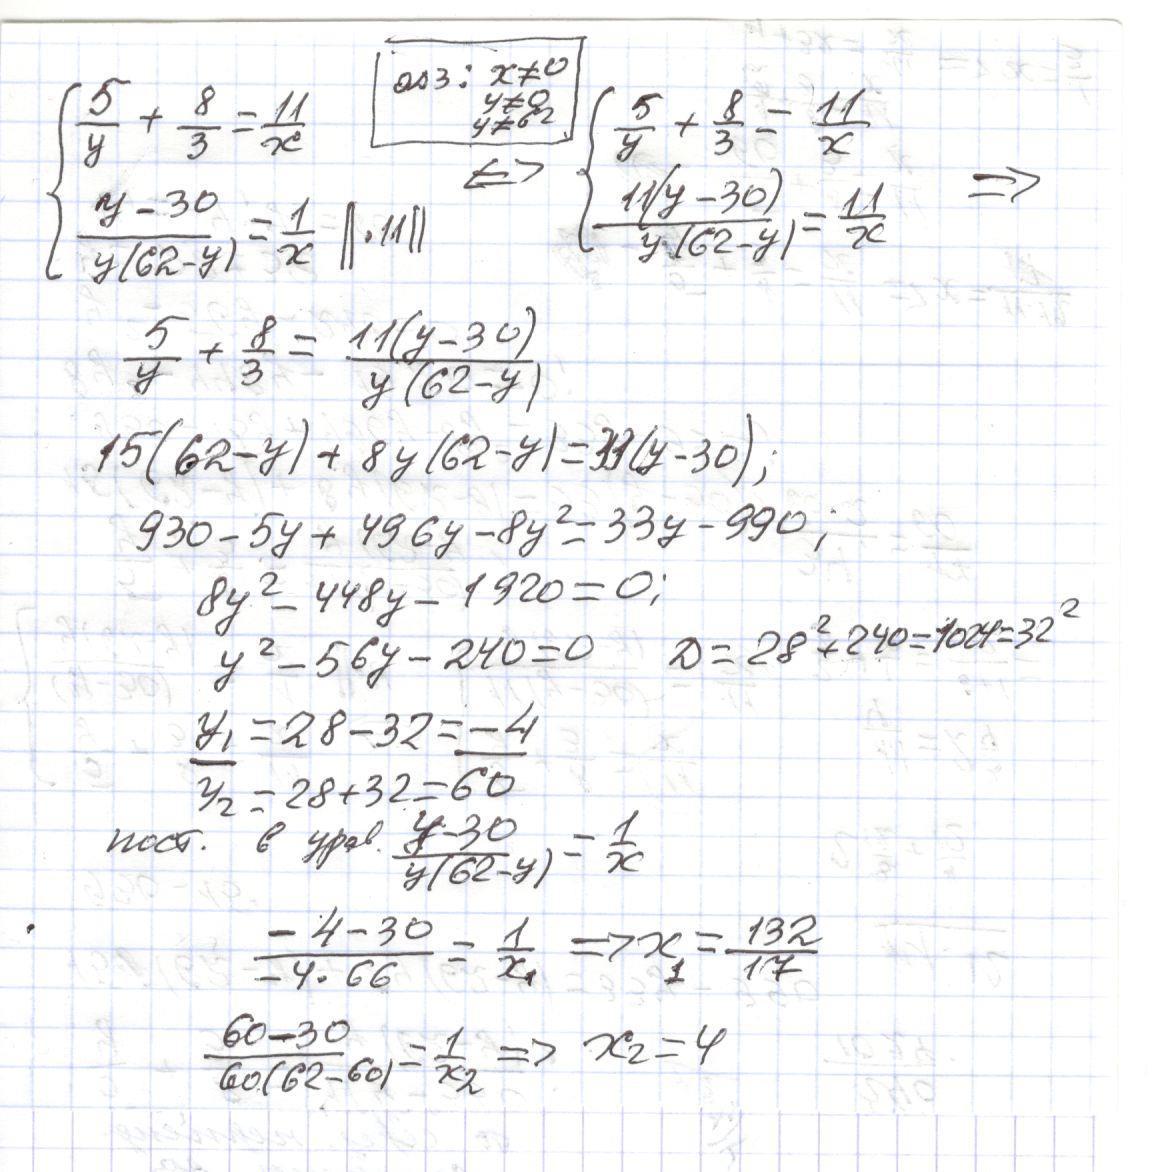 ОДЗ: x≠0
y≠0
y≠62
{ 5/y + 8/3 = 11/x
(y-30)/(y(62-y)) = 1/x ||·11||
<=> { 5/y + 8/3 = 11/x
11(y-30)/(y(62-y)) = 11/x =>
5/y + 8/3 = 11(y-30)/(y(62-y))
15(62-y) + 8y(62-y) = 33(y-30);
930-5y + 496y - 8y² = 33y - 990;
8y² - 448y - 1920 = 0;
y² - 56y - 240 = 0 D = 28² + 240 = 1024 = 32²
y₁ = 28-32 = -4
y₂ = 28+32 = 60
пост. в урав. (y-30)/(y(62-y)) = 1/x
(-4-30)/(-4·66) = 1/x₁ => x₁ = 132/17
(60-30)/(60(62-60)) = 1/x₂ => x₂ = 4